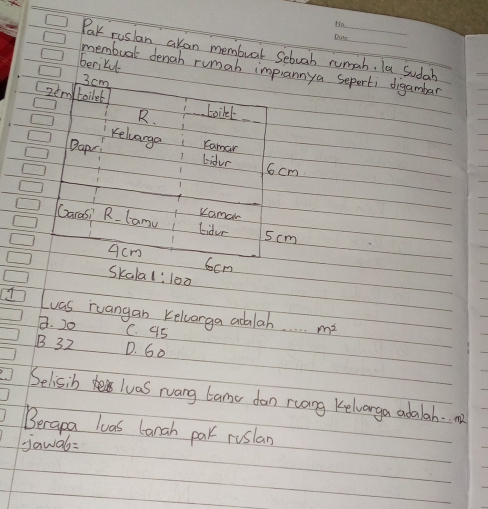 No
Date
Pak ruslan akan membuat Sebuah rumah. Ia Sudah
membuat denah rumah impiannya seperti digambar
berikut
3cm
2cm toilet
toilet
R.
Keluarga
Kamar
tidur
Dapur
6cm
Garasi R-tamu
Kamar
tidur
5cm
4cm
6cm
Skala 1:100
1 Luas ruangan Keluarga adalah ..... m²
a. 20 C. 45
B 32 D. 60
2 Selisih luas ruang tamu dan ruang Keluarga adalah... m2
Berapa luas tanah pak ruslan
jawab=